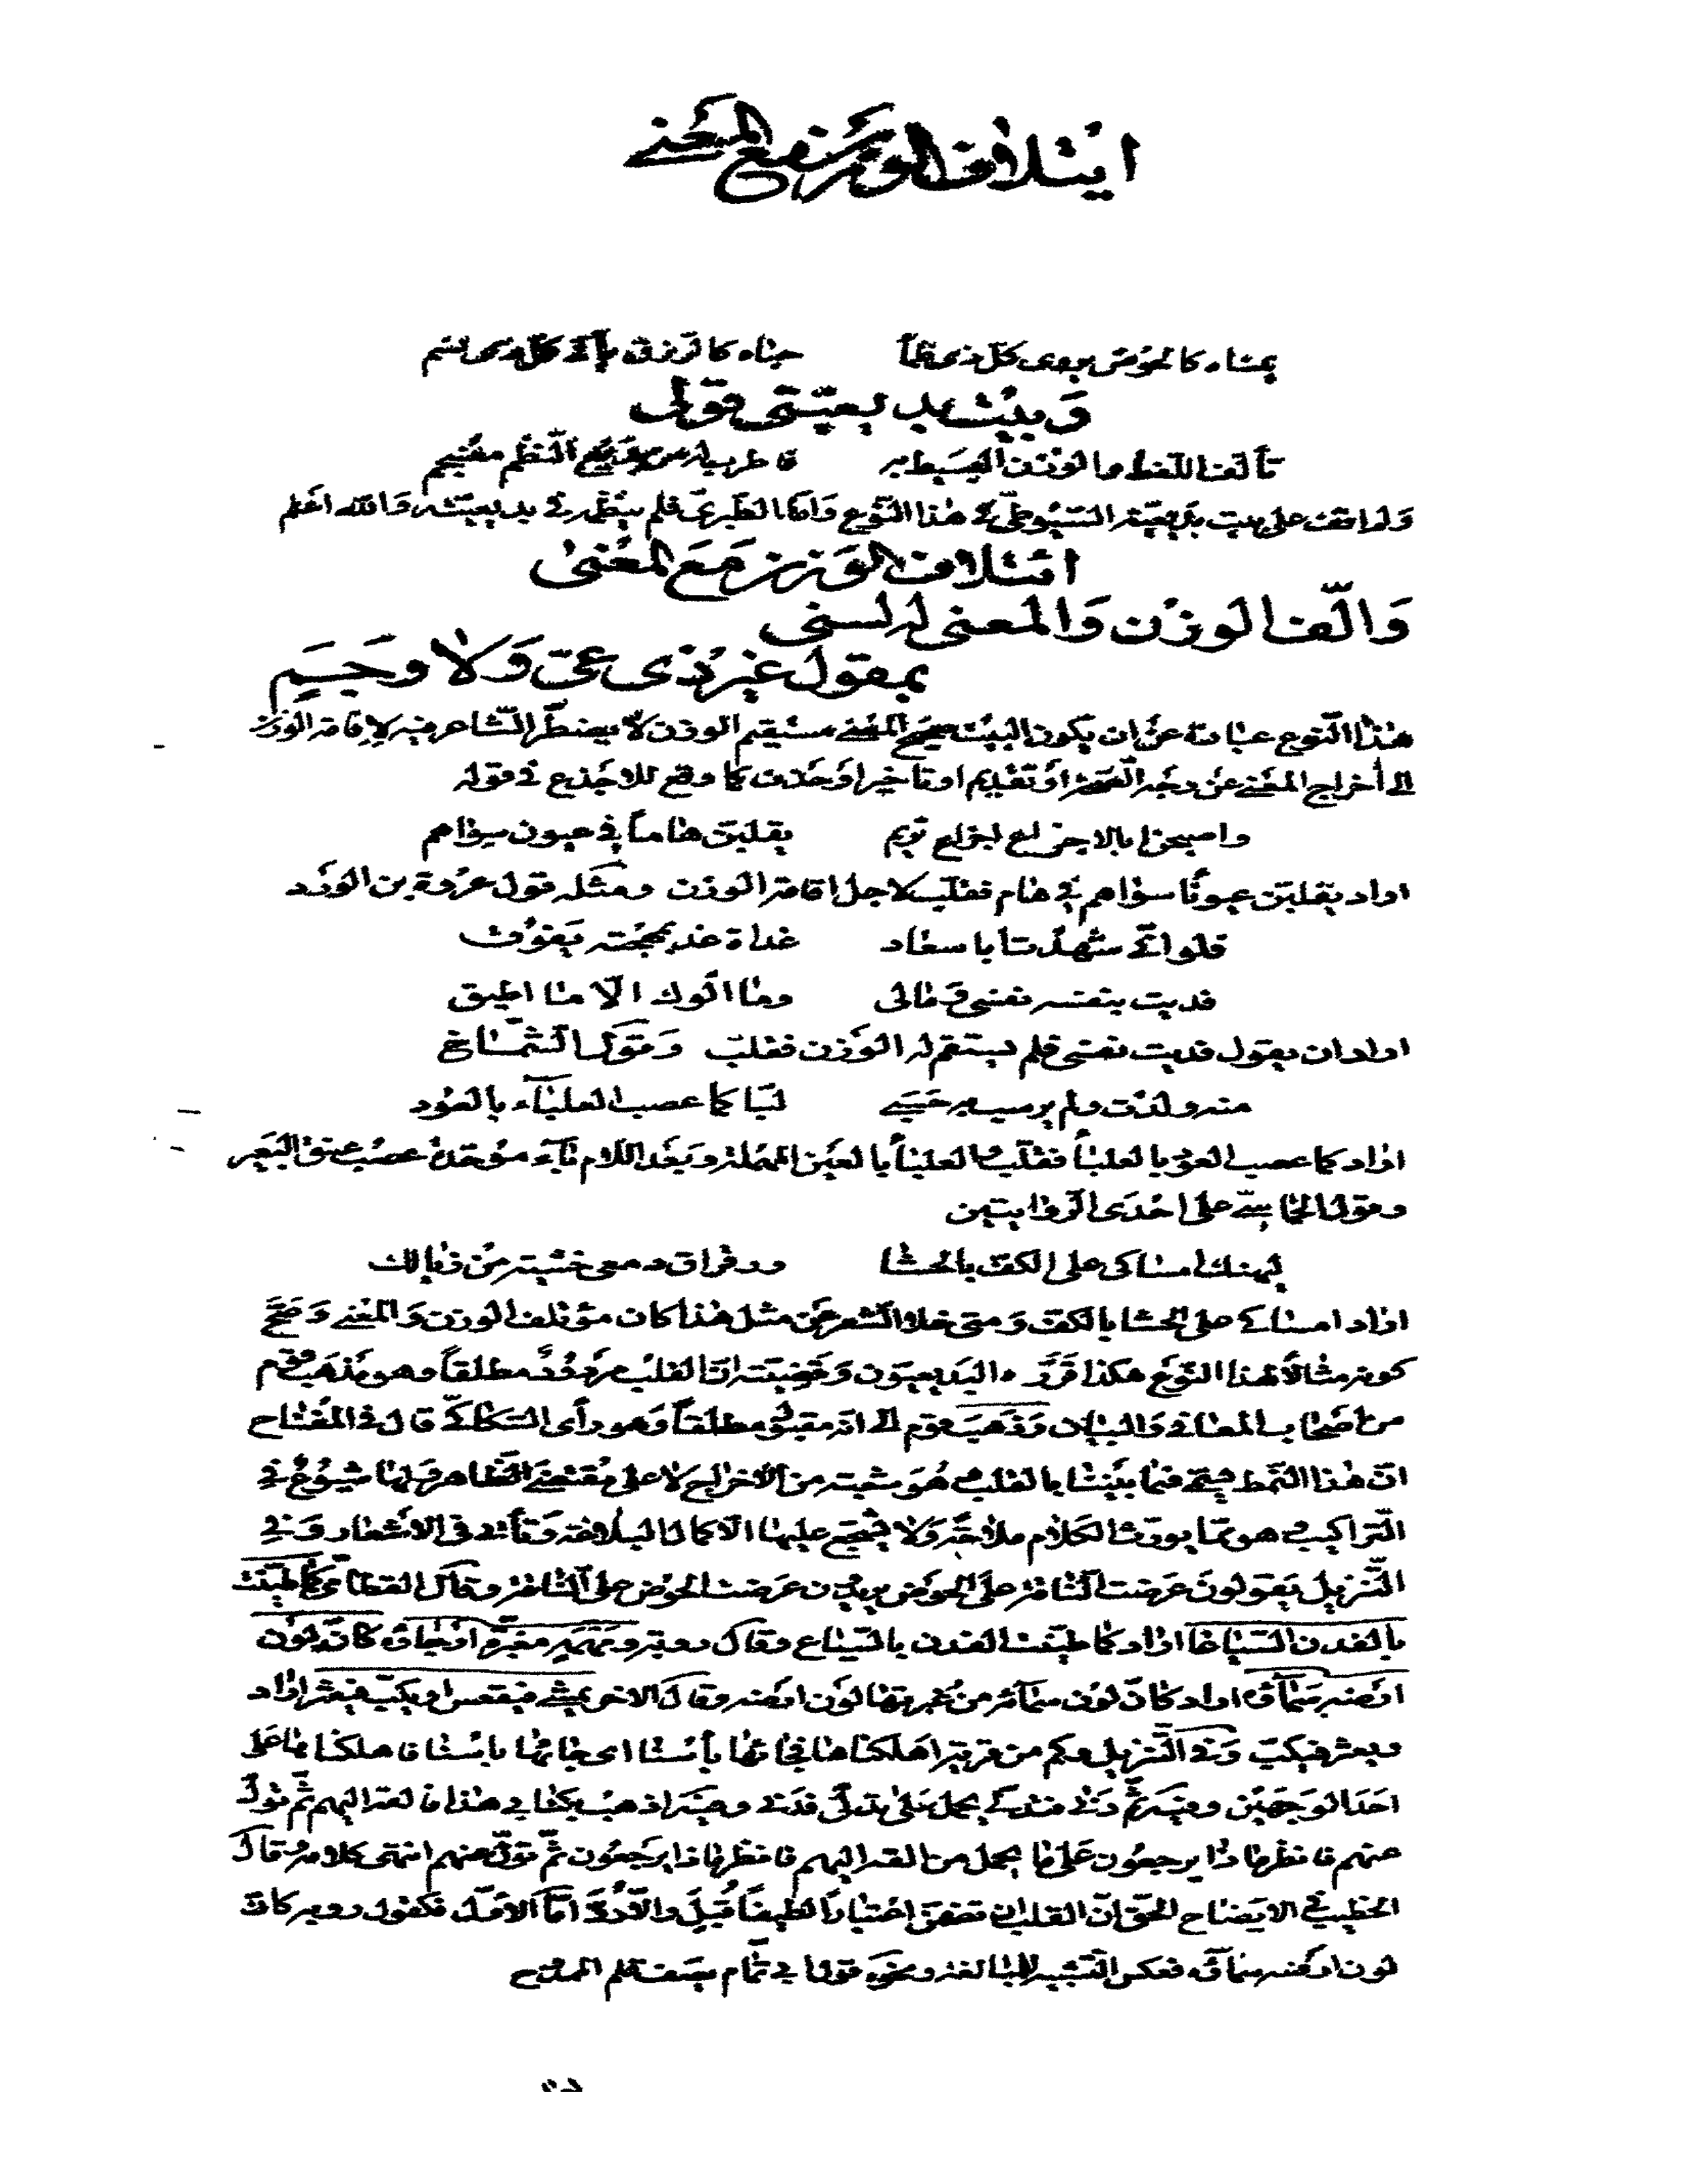 ائتلاف الوزن مع المعنى
يمناه كالحوض يروى كل ذى ظمأ جناه كالرزق يأتى كل ذى نسم
وبيت بديعيتى قولى
تألف اللفظ والوزن البسيط به فاطرب له من بديع النظم
ولم اقف على بيت بديعية السيوطى فى هذا النوع وامّا الطبرى فلم ينظمه فى بديعيته والله اعلم
ائتلاف الوزن مع المعنى
والّف الوزن والمعنى له لسنى
بمقول غير ذى عىّ ولا وجم
هذا النوع عبارة عن ان يكون البيت صحيح المعنى مستقيم الوزن لا يضطر الشاعر فيه لاقامة الوزن
الى اخراج المعنى عن وجه الصحة او تقديم او تاخير او حذف كما وقع للاجذع فى قوله
يقلبن هاما فى عيون سواهم
اراد يقلبن عيونا سواهم فى هام فقلب لاجل اقامة الوزن ومثله قول عروة بن الورد
فلو انى شهدت ابا سعاد غداة غد بمهجته يفوق
فديت بنفسه نفسى ومالى وما الوك الا ما اطيق
اراد ان يقول فديت نفسى فلم يستقم له الوزن فقلب وقول الشماخ
منه ولدت ولم يوسب به حسبى لبا كما عصب العلباء بالعود
اراد كما عصب العود بالعلبا فقلب والعلبا بالعين المهملة وبعد اللام بآء موحدة عصب عنق البعير
وقول الحماسى على احدى الروايتين
ليهنك امساكى على الكف بالحشا ورقراق دمعى خشية من زيالك
اراد امساكى على الحشا بالكف ومتى خلا الشعر عن مثل هذا كان مؤتلف الوزن والمعنى وصح
كونه مثالا لهذا النوع هكذا قرره البديعيون وقضيته ان القلب مردود مطلقا وهو مذهب قوم
من اصحاب المعانى والبيان وذهب قوم الى انه مقبول مطلقا وهو رأى السكاكى قال فى المفتاح
ان هذا النمط يسمى فيما بيننا بالقلب وهو شعبة من الاخراج لا على مقتضى الظاهر ولها شيوع فى
التراكيب وهو مما يورث الكلام ملاحة ولا يشجع عليها الا كمال البلاغة وتأتى فى الاشعار وفى
التنزيل يقولون عرضت الناقة على الحوض يريدون عرضت الحوض على الناقة وقال القطامى كما طينت
بالفدن السياعا اراد كما طينت الفدن بالسياع وقال رؤبة ومهمه مغبرة ارجاؤه كان لون
ارضه سماؤه اراد كان لون سمائه من غبرتها لون ارضه وقال الاخر يمشى فيقعس او يكب فيعثر اراد
ويعثر فيكب وفى التنزيل وكم من قرية اهلكناها فجاءها بأسنا اى جاءها بأسنا فاهلكناها على
احد الوجهين وفيه ثم دنى فتدلى يحمل على تدلى فدنى وفيه اذهب بكتابى هذا فالقه اليهم ثم تول
عنهم فانظر ماذا يرجعون على ما يحمل من القه اليهم فانظر ماذا يرجعون ثم تول عنهم انتهى كلامه وقال
الخطيب فى الايضاح الحق ان القلب ان تضمن اعتبارا لطيفا قبل والا ردّ امّا الاول فكقول رؤبة كان
لون ارضه سماؤه فعكس التشبيه للمبالغة ونحوه قول ابى تمام يصف قلم الممدوح